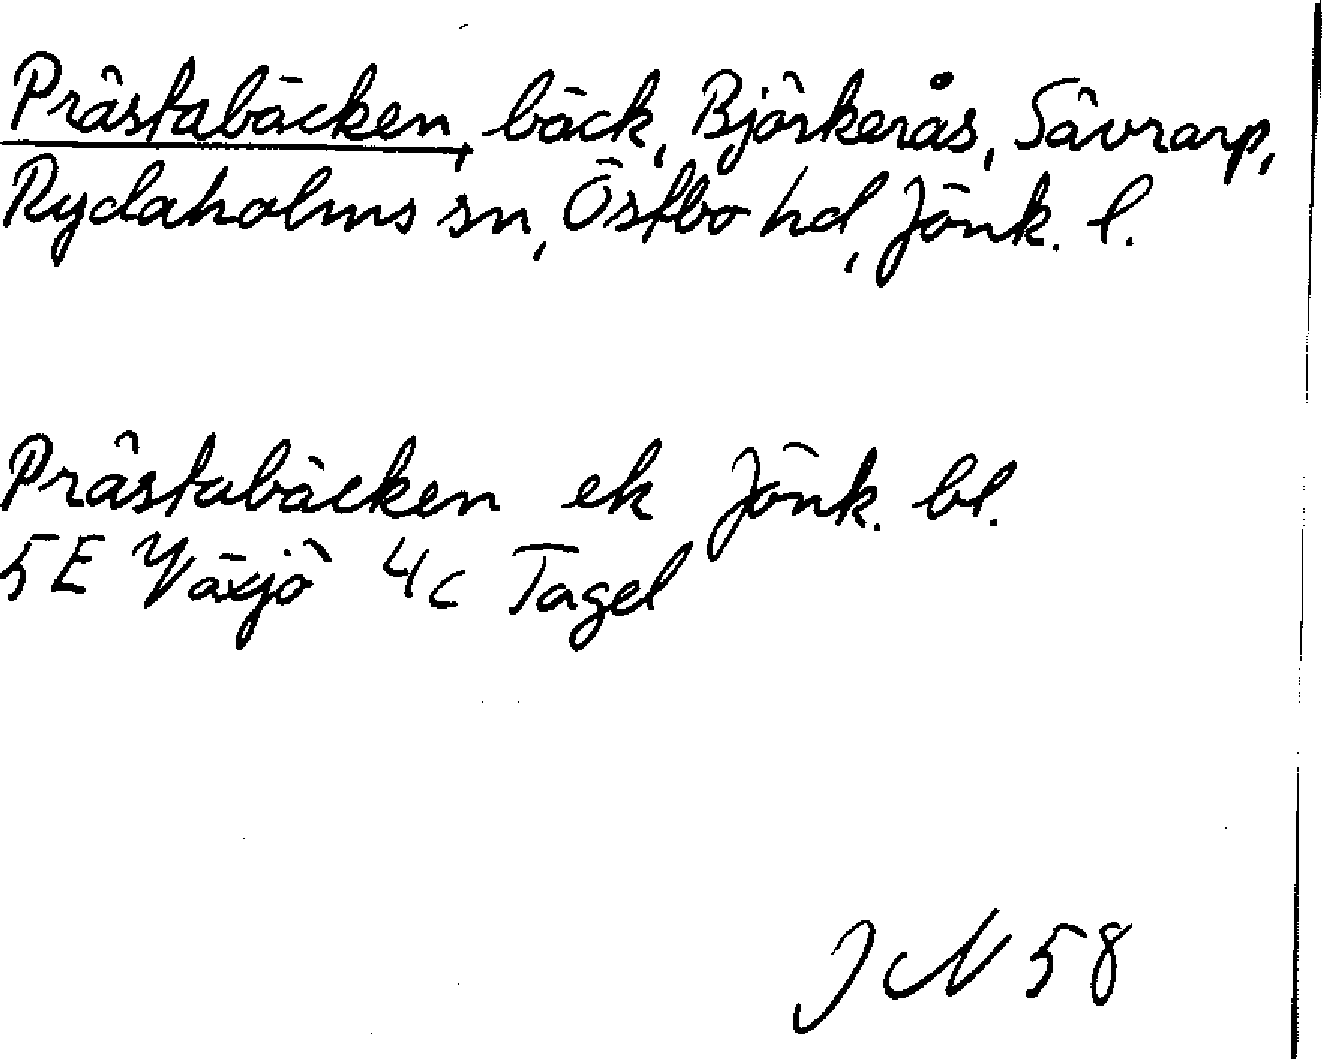 Prästabäcken, bäck, Björkerås, Sävrarp,
Rydaholms sn, Östbo hd, Jönk. l.
Prästabäcken ek Jönk. bl.
5E Växjö 4c Tagel
JN 58